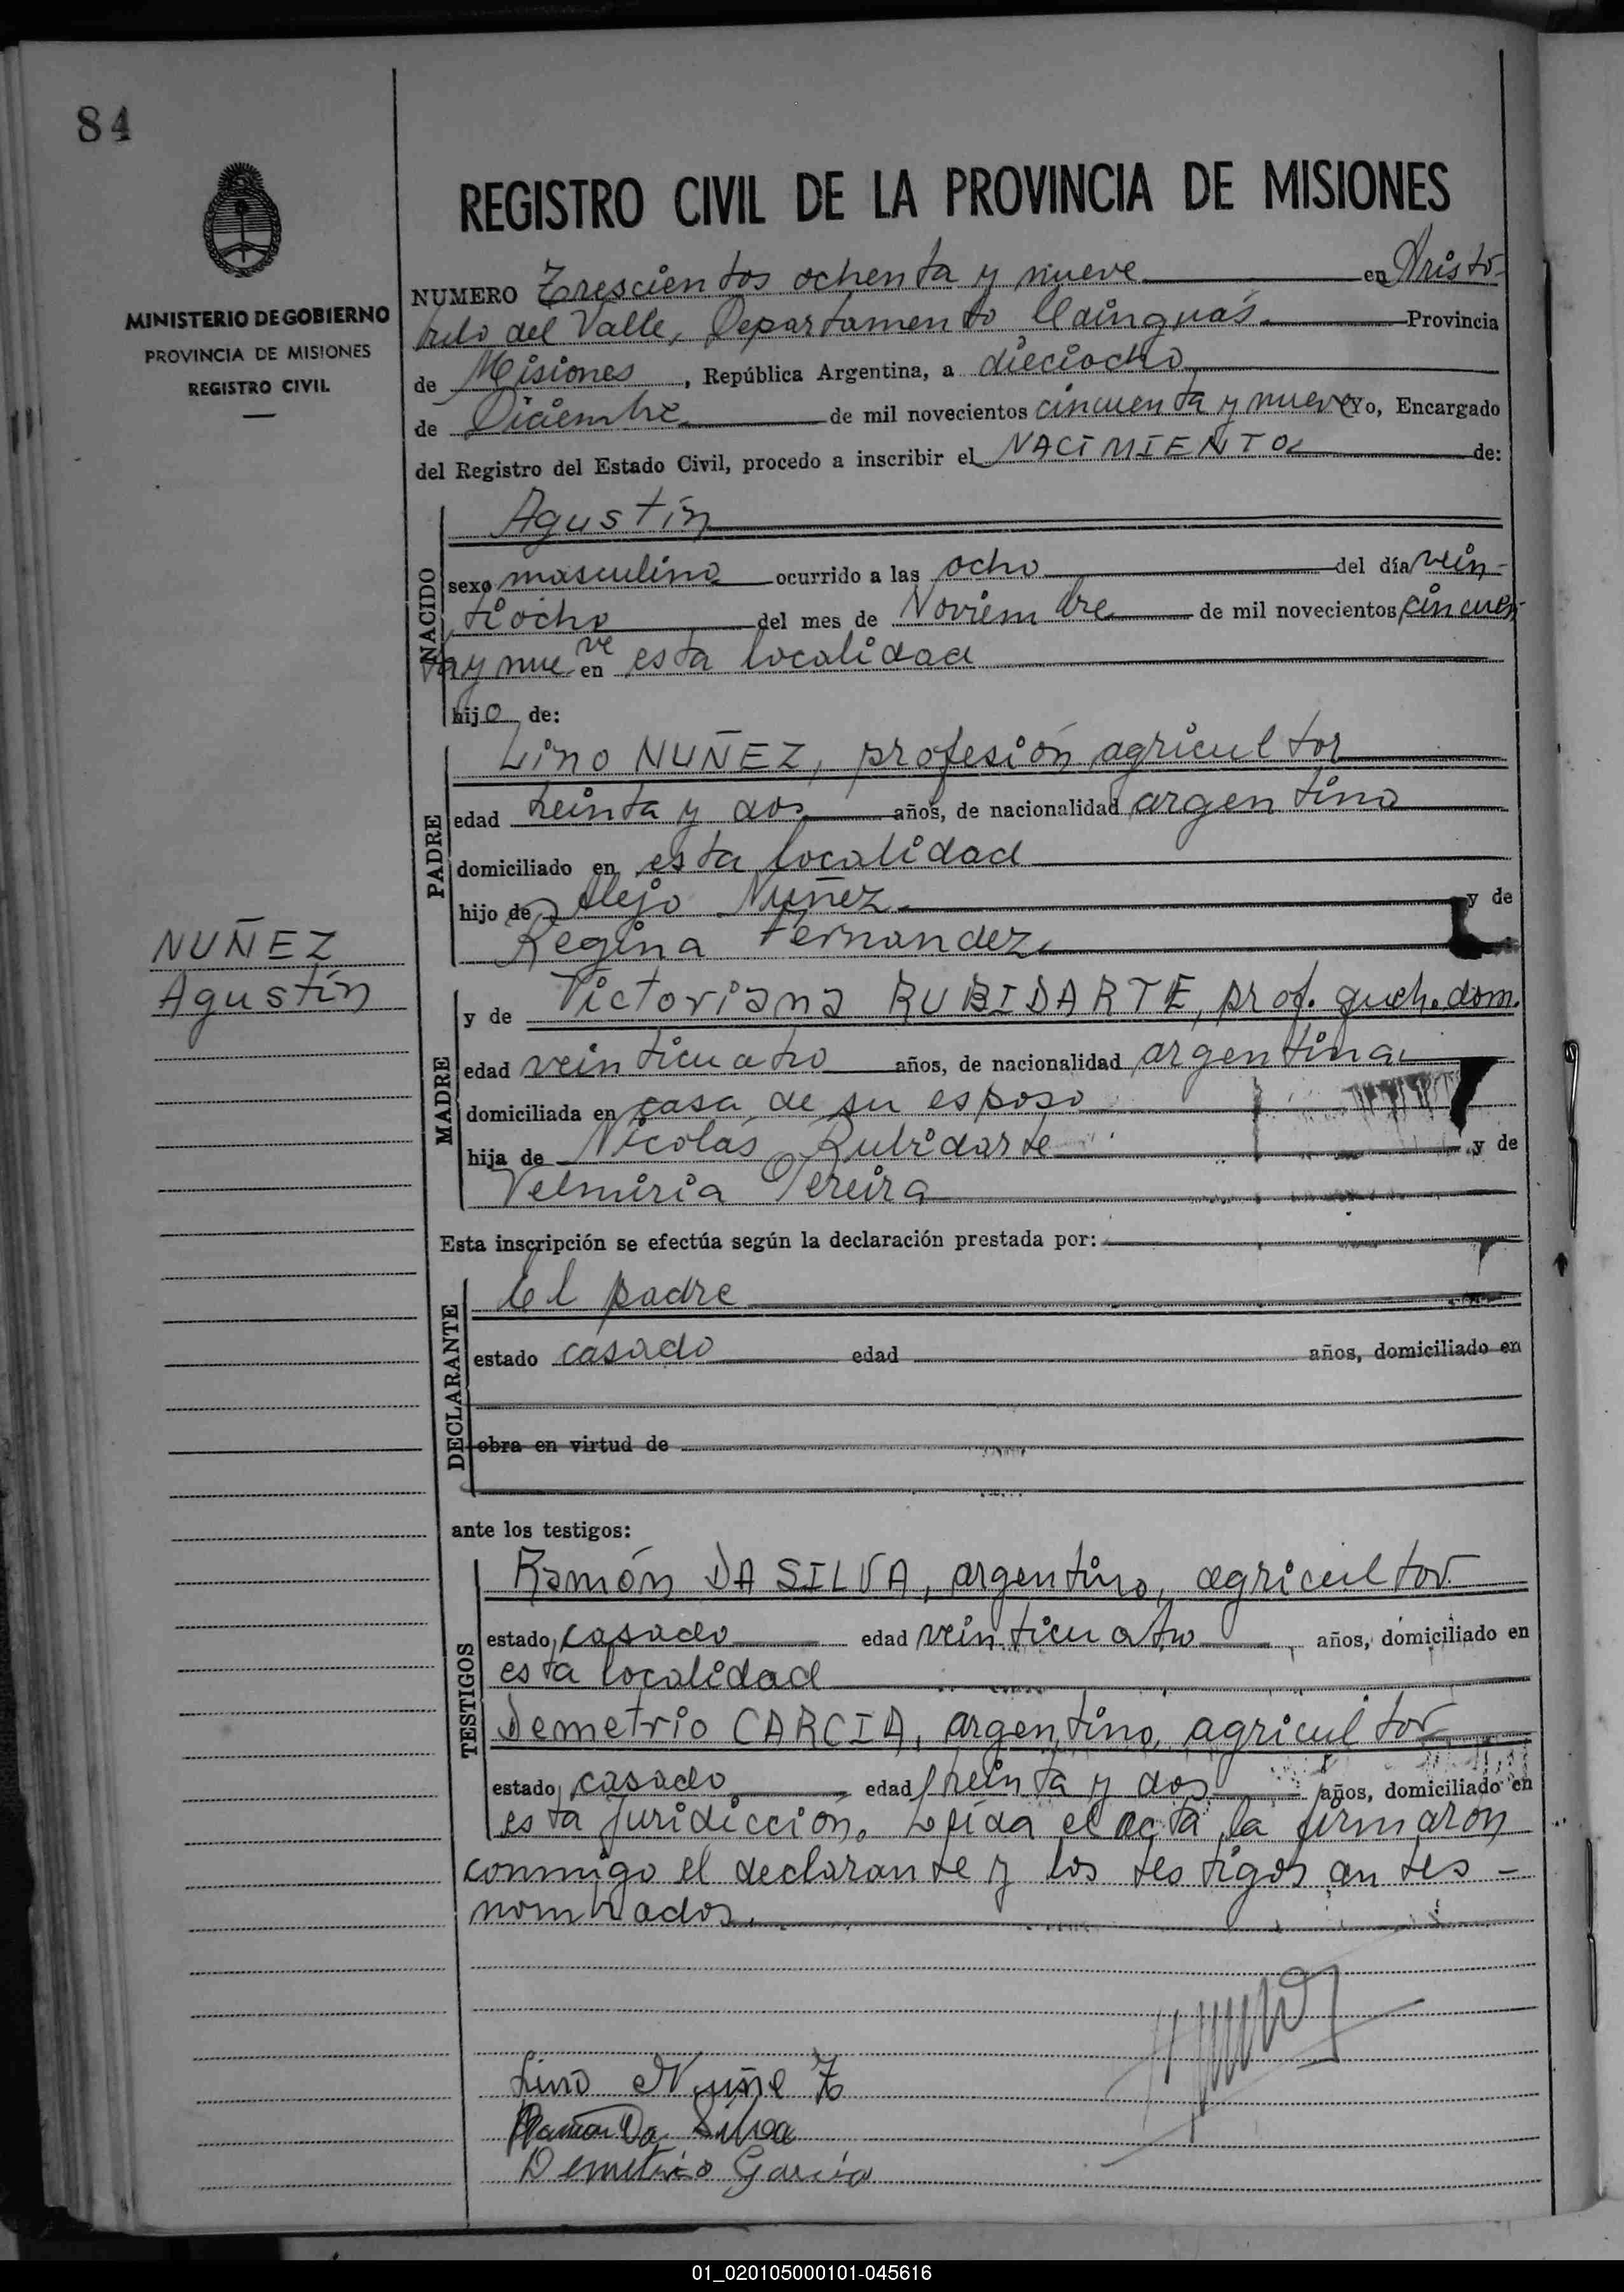 84
MINISTERIO DE GOBIERNO
PROVINCIA DE MISIONES
REGISTRO CIVIL
REGISTRO CIVIL DE LA PROVINCIA DE MISIONES
NUMERO Trescientos ochenta y nueve en Aristó-
bulo del Valle, Departamento Cainguás. Provincia
de Misiones, República Argentina, a dieciocho
de Diciembre de mil novecientos cincuenta y nueve Yo, Encargado
del Registro del Estado Civil, procedo a inscribir el NACIMIENTO de:
NACIDO
Agustín
sexo masculino ocurrido a las ocho del día vein-
tiocho del mes de Noviembre de mil novecientos cincuen-
ta y nueve en esta localidad
hijo de:
PADRE
Lino NUÑEZ, profesión agricultor
edad treinta y dos años, de nacionalidad argentino
domiciliado en esta localidad
hijo de Alejo Nuñez y de
Regina Fernandez
NUÑEZ
Agustín
MADRE
y de Victoriana RUBIDARTE, prof. queh. dom.
edad veinticuatro años, de nacionalidad argentina
domiciliada en casa de su esposo
hija de Nicolás Rubidarte y de
Velmiria Pereira
Esta inscripción se efectúa según la declaración prestada por:
DECLARANTE
El padre
estado casado edad años, domiciliado en
obra en virtud de
ante los testigos:
TESTIGOS
Ramón DA SILVA, argentino, agricultor
estado casado edad veinticuatro años, domiciliado en
esta localidad
Demetrio GARCIA, argentino, agricultor
estado casado edad treinta y dos años, domiciliado en
esta juridicción. Leída el acta la firmaron
conmigo el declarante y los testigos antes-
nombrados.
Lino Nuñez
Ramon Da Silva
Demetrio Garcia
01_020105000101-045616